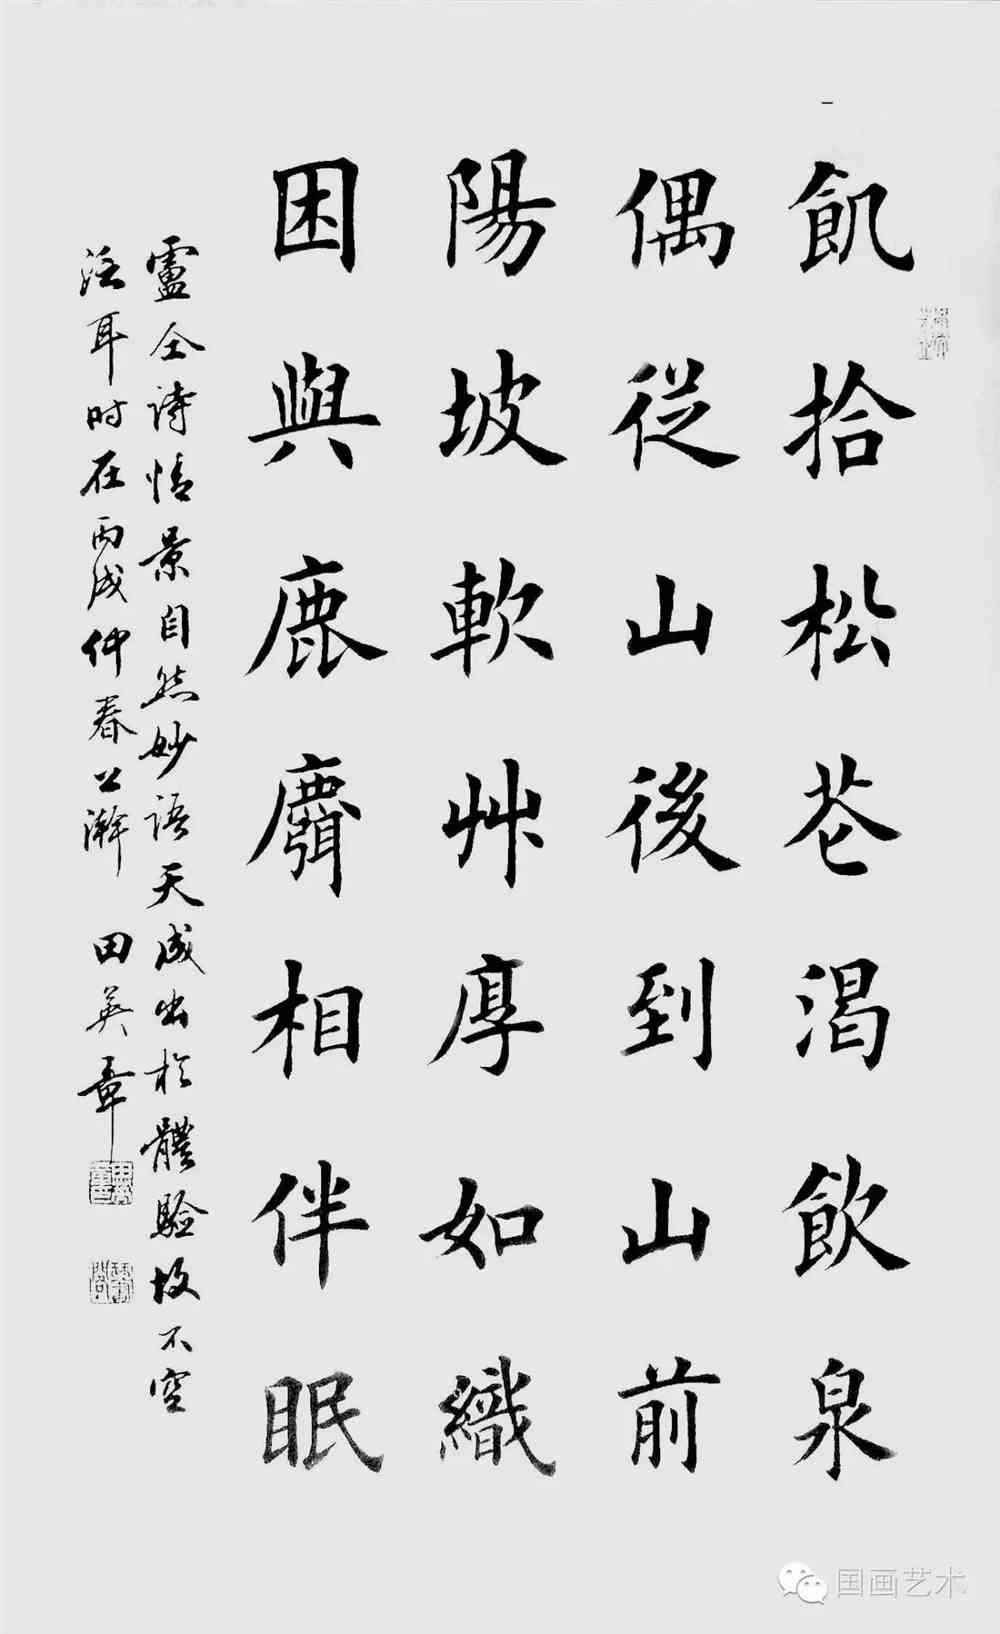 飢拾松花渴飲泉
偶從山後到山前
陽坡軟艸厚如織
困與鹿麛相伴眠
盧仝诗情景自然妙语天成出於體驗故不空
泛耳时在丙戌仲春公瀚 田英章
国画艺术